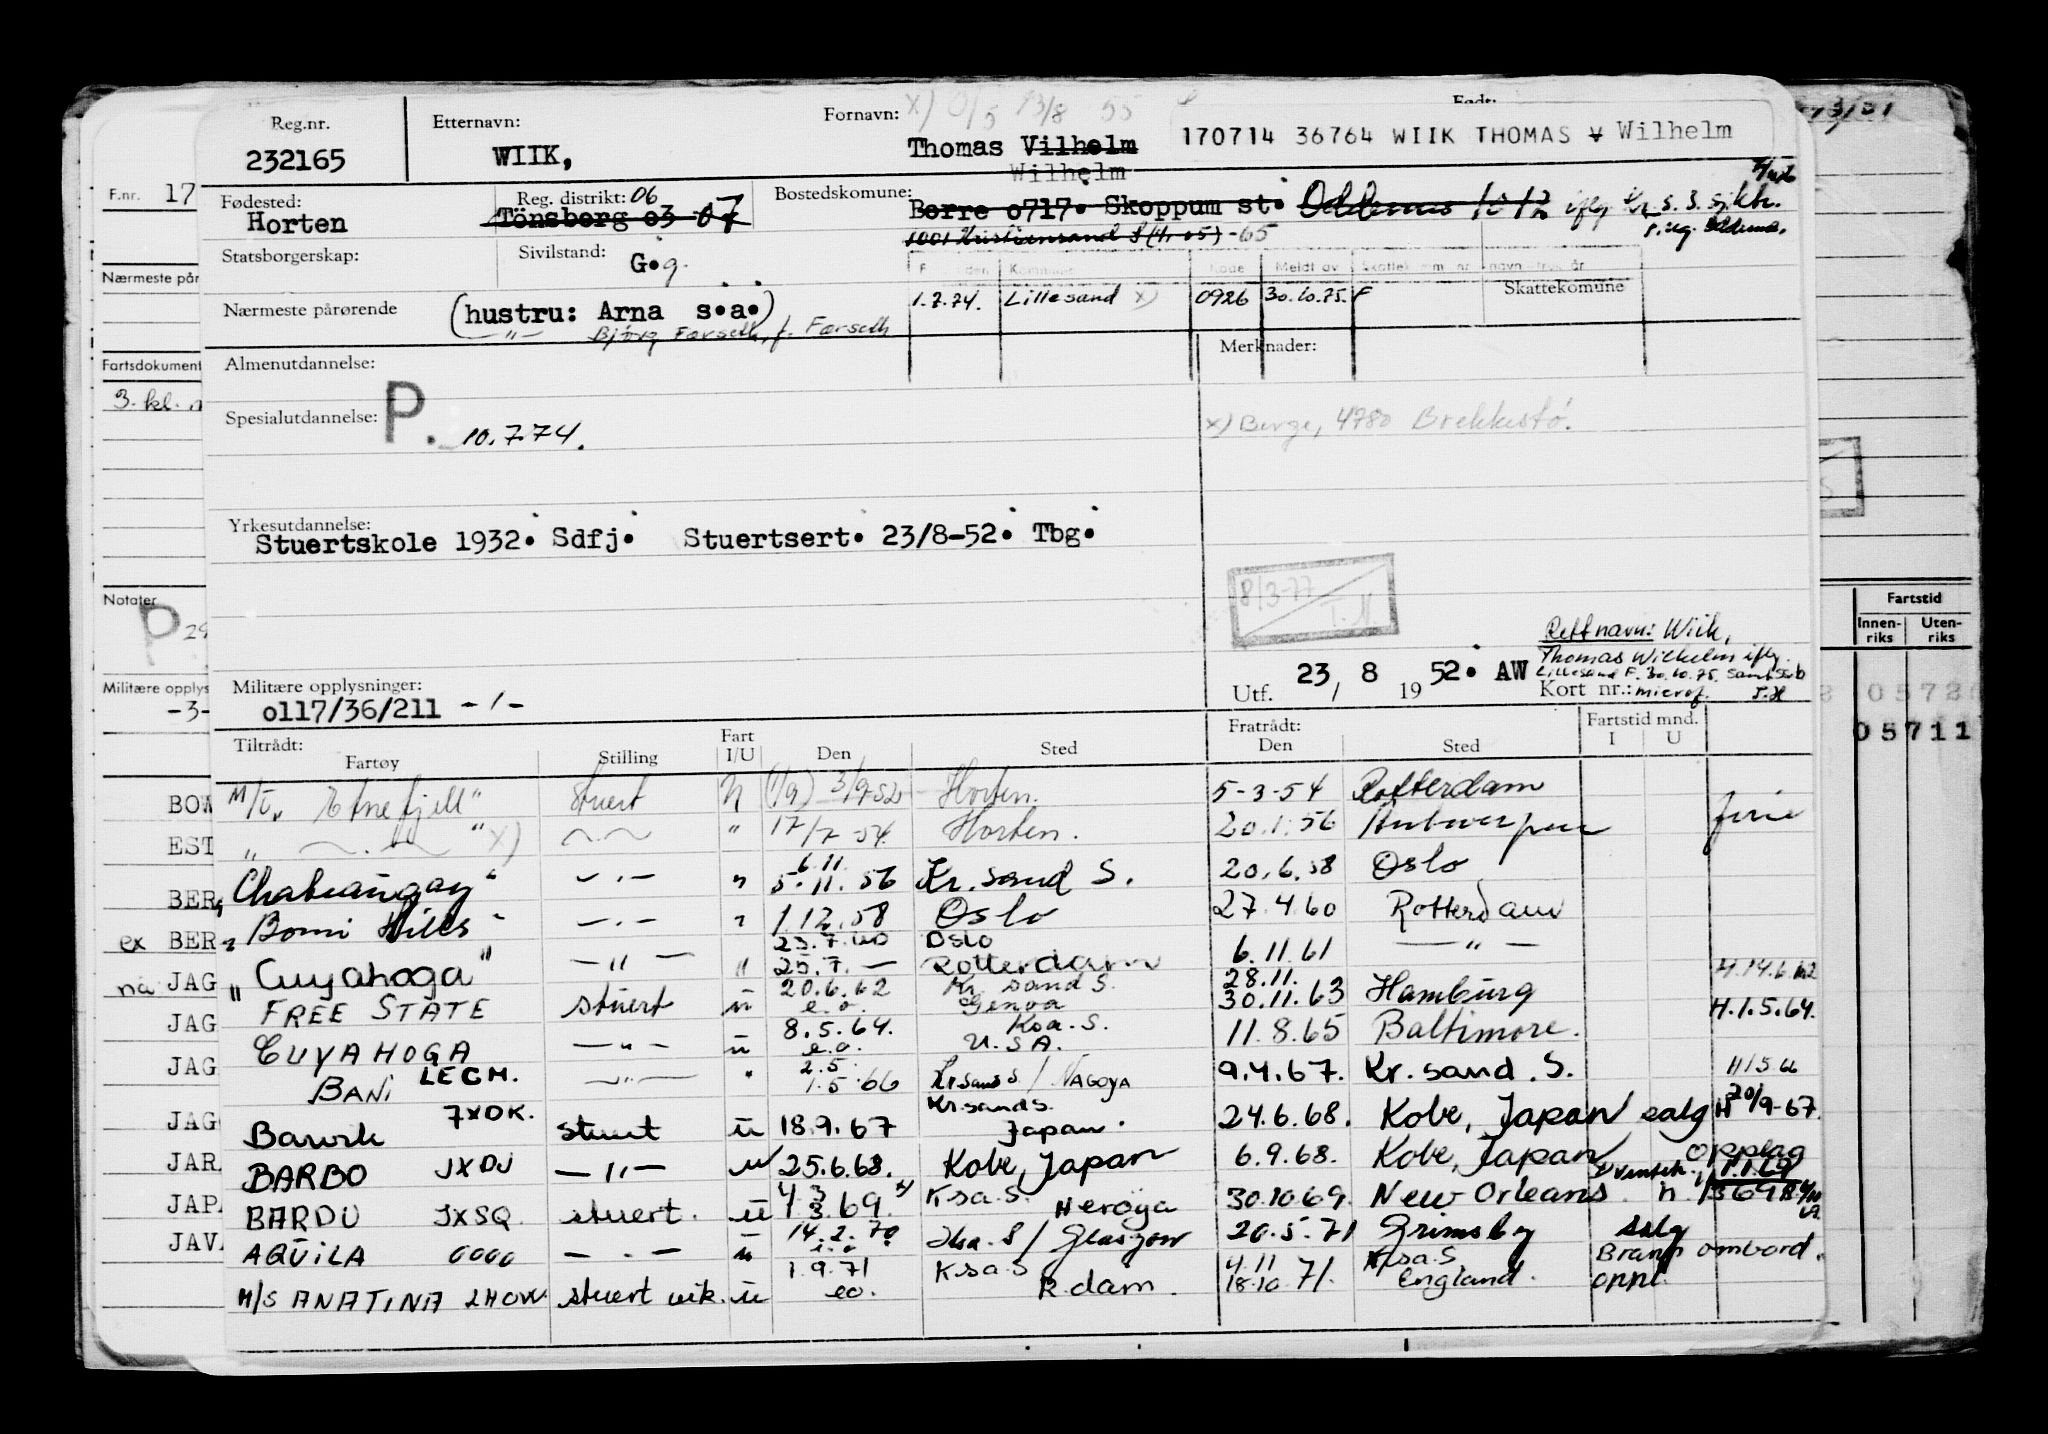 Reg.nr.
232165
Etternavn:
WIIK,
Fornavn: x) 13/8 55
Thomas Vilhelm
Wilhelm
Født:
170714 36764 WIIK THOMAS V Wilhelm
Fødested:
Horten
Reg. distrikt: 06
Tönsberg o3 07
Bostedskomune:
Borre o717. Skoppum st. Oddernes 1012 iflg Kr. s. S. sjktr.
1001 Kristiansand S (fr. 05) -65
Statsborgerskap:
Sivilstand:
G.g.
Kommune Kode Meldt av
1.7.74. Lillesand x) 0926 30.10.75. F
Skattekomune
Nærmeste pårørende
(hustru: Arna s.a.)
—"— Bjørg Farseth, f. Farseth
Almenutdannelse:
Merknader:
Spesialutdannelse:
P. 10.7.74.
x) Berge, 4780 Brekkestø.
Yrkesutdannelse:
Stuertskole 1932. Sdfj. Stuertsert. 23/8-52. Tbg.
8/3-77
T.H
Rett navn: Wiik,
Thomas Wilhelm iflg.
Lillesand F. 30.10.75.
Utf. 23 / 8 19 52. AW
Kort nr.: microf. T.H
Militære opplysninger:
o117/36/211 -/-
Tiltrådt:
Fartøy
Stilling
Fart
I/U
Den
Sted
Fratrådt:
Den
Sted
Fartstid mnd.
I U
M/T „Etnefjell" Stuert U (1/9) 3/9-52 Horten. 5-3-54 Rotterdam
„ —.— " x) —.— " 17/7 54 Horten. 20.1.56 Antwerpen ferie
6.11
Chatauqay" —.— " 5.11.56 Kr.sand S. 20.6.58 Oslo
„Bomi Hills" —.— " 1.12.58 Oslo 27.4.60 Rotterdam
23.7.60 Oslo
„Cuyahoga" —"— " 25.7.— Rotterdam 6.11.61 —"—
20.6.62 Kr.sand S. 28.11. H.14.6.62
FREE STATE stuert u e.o. Genoa 30.11.63 Hamburg
8.5.64. Ksa.S. H.1.5.64.
CUYAHOGA —"— u e.o. U.S.A. 11.8.65 Baltimore.
2.5
BANI LECM. —"— " 1.5.66 Kr.sand S / NAGOYA 9.4.67. Kr.sand.S.
Kr.sand S.
Barwk JXOK. stuert u 18.9.67 Japan. 24.6.68. Kobe, Japan salg H 20/9-67.
BARBO JXDJ —"— u 25.6.68. Kobe, Japan 6.9.68. Kobe, Japan opplag
BARDU JXSQ. stuert. u 4.3.69 x) Ksa.S. Herøya 30.10.69. New Orleans
AQUILA OOOO —.— u 14.2.70 e.o Ksa.S / Glasgow 20.5.71 Grimsby salg
1.9.71 Ksa.S 4.11 Ksa.S Brann ombord.
M/S ANATINA LHOW stuert vik. u eo. R.dam. 18.10.71. England. oppl.
F.nr. 17
Nærmeste pår
Fartsdokument
3. kl.
Notater
P
Militære opplys
-3-
BOW
EST
BER
ex BER
nå JAG
JAG
JAG
JAG
JAR
JAP
JAV
Fartstid
Innen-
riks
Uten-
riks
05711